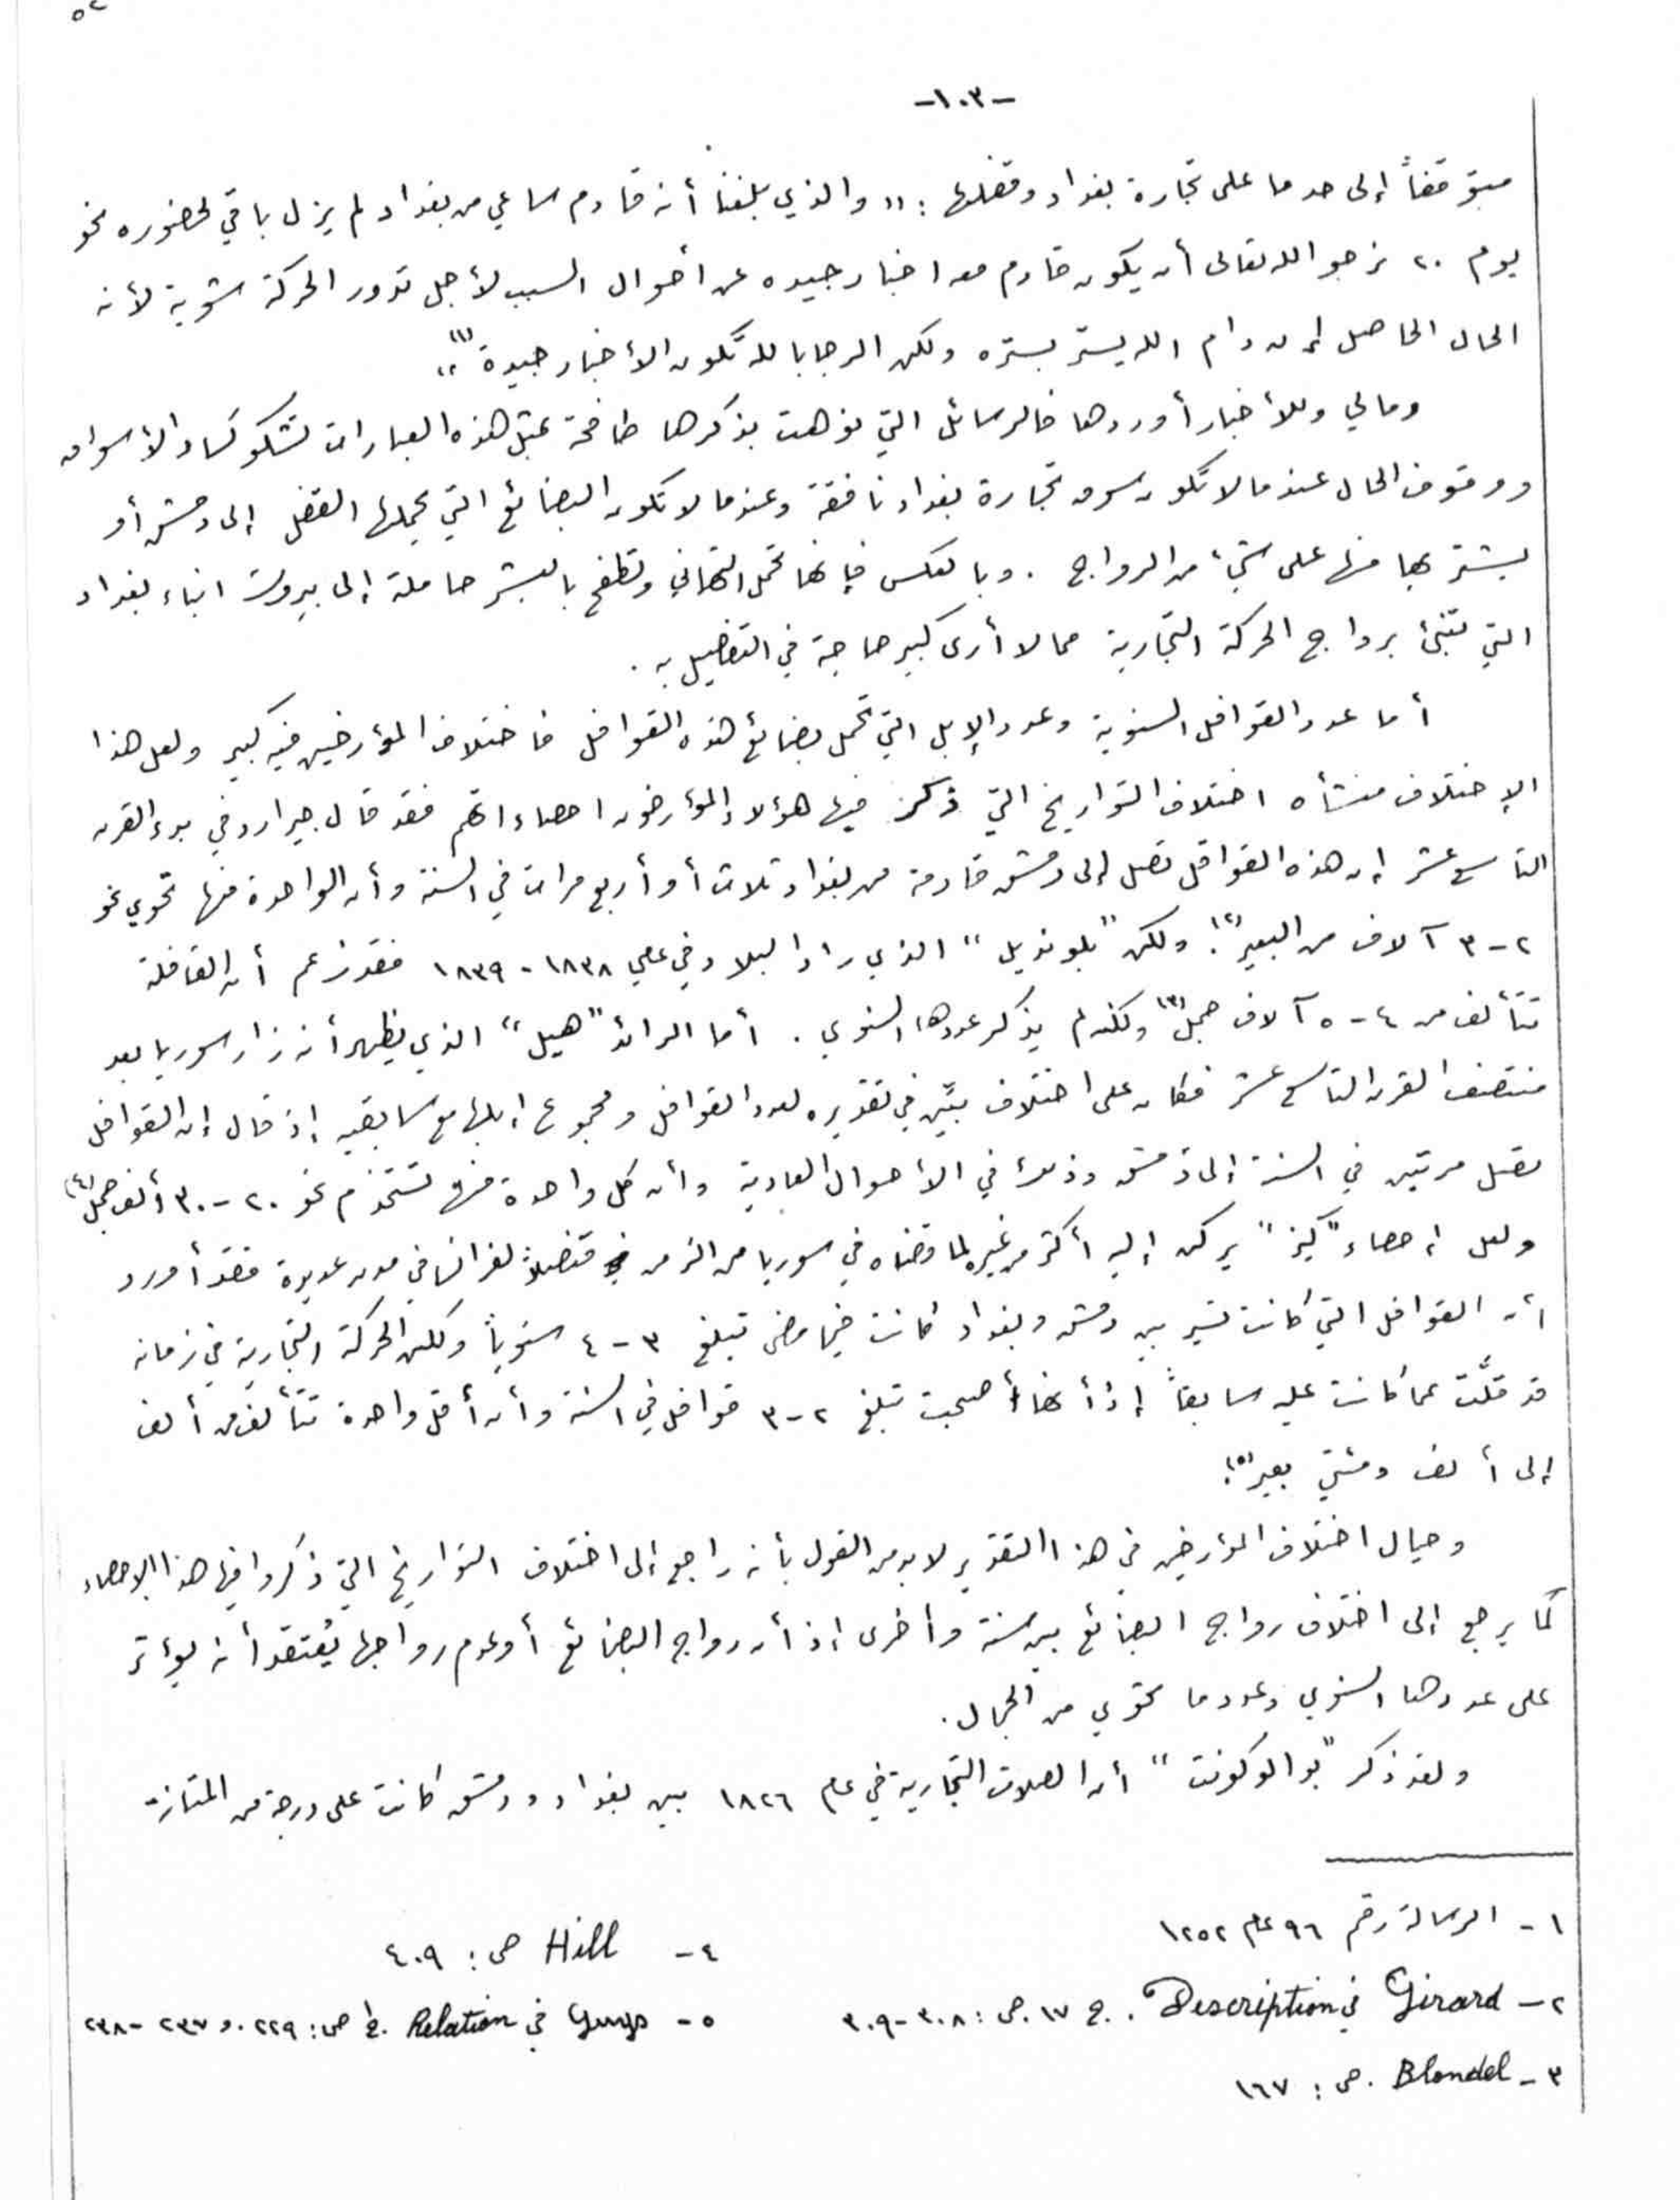 -١٠٣-
متوقفاً إلى حد ما على تجارة بغداد وقفلها : " والذي بلغنا أنه قادم ساعي من بغداد لم يزل باقي لحضوره نحو
يوم ٢٠ نرجو الله تعالى أن يكون قادم معه اخبار جيده عن أحوال السبب لأجل تدور الحركة شوية لأنه
الحال الحاصل إن دام الله يستر بستره ولكن الرجا بالله تكون الأخبار جيدة "(١).
ومالي وللأخبار أوردها فالرسائل التي نوهت بذكرها طافحة بمثل هذه العبارات تشكو كساد الأسواق
ووقوف الحال عندما لا تكون سوق تجارة بغداد نافقة وعندما لا تكون البضائع التي يحملها القفل إلى دمشق أو
يشتريها منها على شيء من الرواج . وبالعكس فإنها تحمل التهاني وتطفح بالبشر حاملة إلى بيروت انباء بغداد
التي تنبئ برواج الحركة التجارية مما لا أرى كبير حاجة في التفصيل به .
أما عدد القوافل السنوية وعدد الإبل التي تحمل بضائع هذه القوافل فاختلاف المؤرخين فيه كبير ولعل هذا
الإختلاف منشأه اختلاف التواريخ التي ذكر فيها هؤلاء المؤرخون احصاءاتهم فقد قال جيرارد في بدء القرن
التاسع عشر إن هذه القوافل تصل إلى دمشق قادمة من بغداد ثلاث أو أربع مرات في السنة وأن الواحدة منها تحوي نحو
٢-٣ آلاف من البعير(٢). ولكن "بلونديل" الذي زار البلاد في عامي ١٨٣٨ - ١٨٣٩ فقد زعم أن القافلة
تتألف من ٤-٥ آلاف جمل(٣) ولكنه لم يذكر عددها السنوي . أما الرائد "هيل" الذي يظهر أنه زار سوريا بعد
منتصف القرن التاسع عشر فكان على اختلاف بيّن في تقديره لعدد القوافل ومجموع إبلها مع سابقيه إذ قال إن القوافل
تصل مرتين في السنة إلى دمشق وذلك في الأحوال العادية وأن كل واحدة منها تستخدم نحو ٢٠-٣٠ ألف جمل(٤)
ولعل إحصاء "كيز" يركن إليه أكثر من غيره لما قضاه في سوريا من الزمن قنصلاً لفرانسا في مدن عديدة فقد أورد
أن القوافل التي كانت تسير بين دمشق وبغداد كانت فيما مضى تبلغ ٣-٤ سنوياً ولكن الحركة التجارية في زمانه
قد قلّت عما كانت عليه سابقاً إذ أنها أصبحت تبلغ ٢-٣ قوافل في السنة وأن أقل واحدة تتألف من ألف
إلى ألف ومئتي بعير(٥).
وحيال اختلاف المؤرخين في هذا التقدير لا بد من القول بأنه راجع إلى اختلاف التواريخ التي ذكروا فيها هذا الإحصاء
كما يرجع إلى اختلاف رواج البضائع بين سنة وأخرى إذ أن رواج البضائع أو عدم رواجها يُعتقد أنه يؤثر
على عددها السنوي وعدد ما تحوي من الجمال .
ولقد ذكر "بوالوكونت" أن الصلات التجارية في عام ١٨٢٦ بين بغداد ودمشق كانت على درجة من المتانة
١ - الرسالة رقم ٩٦ عام ١٢٥٢
٢ - Girard في Description . ج ١٧ ص : ٣٠٨ - ٣٠٩
٣ - Blondel . ص : ١٦٧
٤ - Hill ص : ٤٠٩
٥ - Guys في Relation . ج١ ص : ٢٢٩ . و ٢٣٧ - ٢٣٨